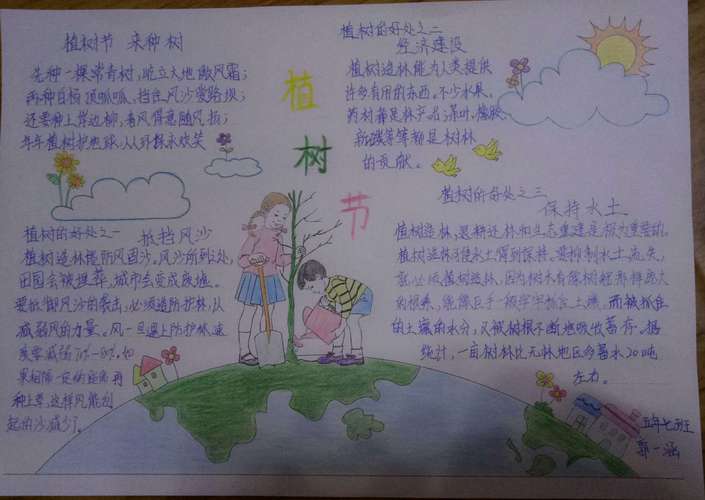 植树节 来种树
先种一棵常青树，屹立大地傲风霜；
两种白杨顶呱呱，挡住风沙
还要种上岸边柳，春风得意随风扬；
年年植树护地球，人人环抱永欢笑
植树节
植树的好处之一 抵挡风沙
植树造林能防风固沙，风沙所到之处，
田园会被埋葬，城市会变成废墟。
要抵御风沙的袭击，必须造防护林，以
减弱风的力量。风一旦遇上防护林，速
度要减弱70%-80%，如
果相隔一定的距离再
种上草，这样风能刮
起的沙减少了。
植树的好处之二
经济建设
植树造林能为人类提供
许多有用的东西。不少水果、
药材都是林产品，茶叶，橡胶，
新碳等等都是树林
的贡献。
植树的好处之三
保持水土
植树造林，退耕还林和生态重建是极为重要的。
植树造林可使水土得到保持，要抑制水土流失，
就必须植树造林，因为树木有像树冠那样庞大
的根系，能像巨手一般牢牢抓住土壤，而被抓住
的土壤的水分，又被树根不断地吸收蓄存。据
统计，一亩树林比无林地区多蓄水20吨
左右。
五年七班
郭一涵